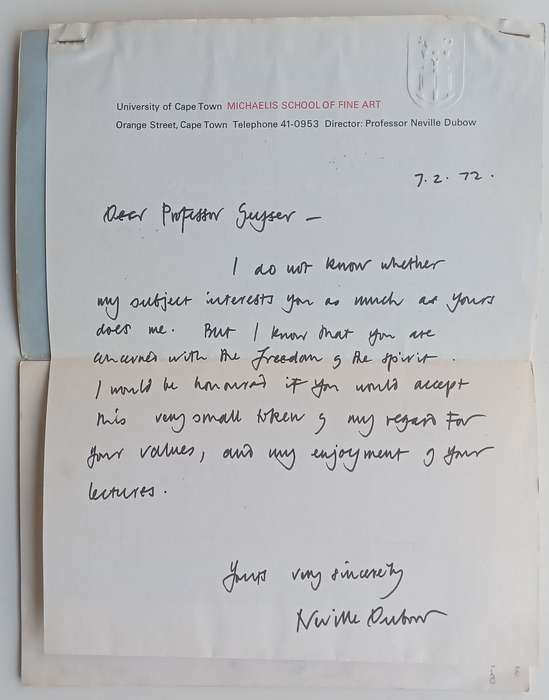 University of Cape Town MICHAELIS SCHOOL OF FINE ART
Orange Street, Cape Town Telephone 41-0953 Director: Professor Neville Dubow
7. 2. 72.
Dear Professor Geyser –
I do not know whether
my subject interests you as much as yours
does me. But I know that you are
concerned with the freedom of the spirit.
I would be honoured if you would accept
this very small token of my regard for
your values, and my enjoyment of your
lectures.
Yours very sincerely
Neville Dubow